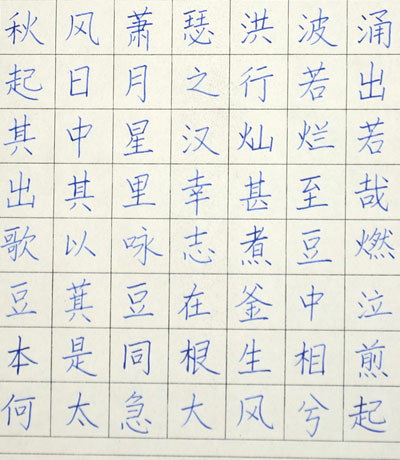 秋风萧瑟洪波涌
起日月之行若出
其中星汉灿烂若
出其里幸甚至哉
歌以咏志煮豆燃
豆萁豆在釜中泣
本是同根生相煎
何太急大风兮起